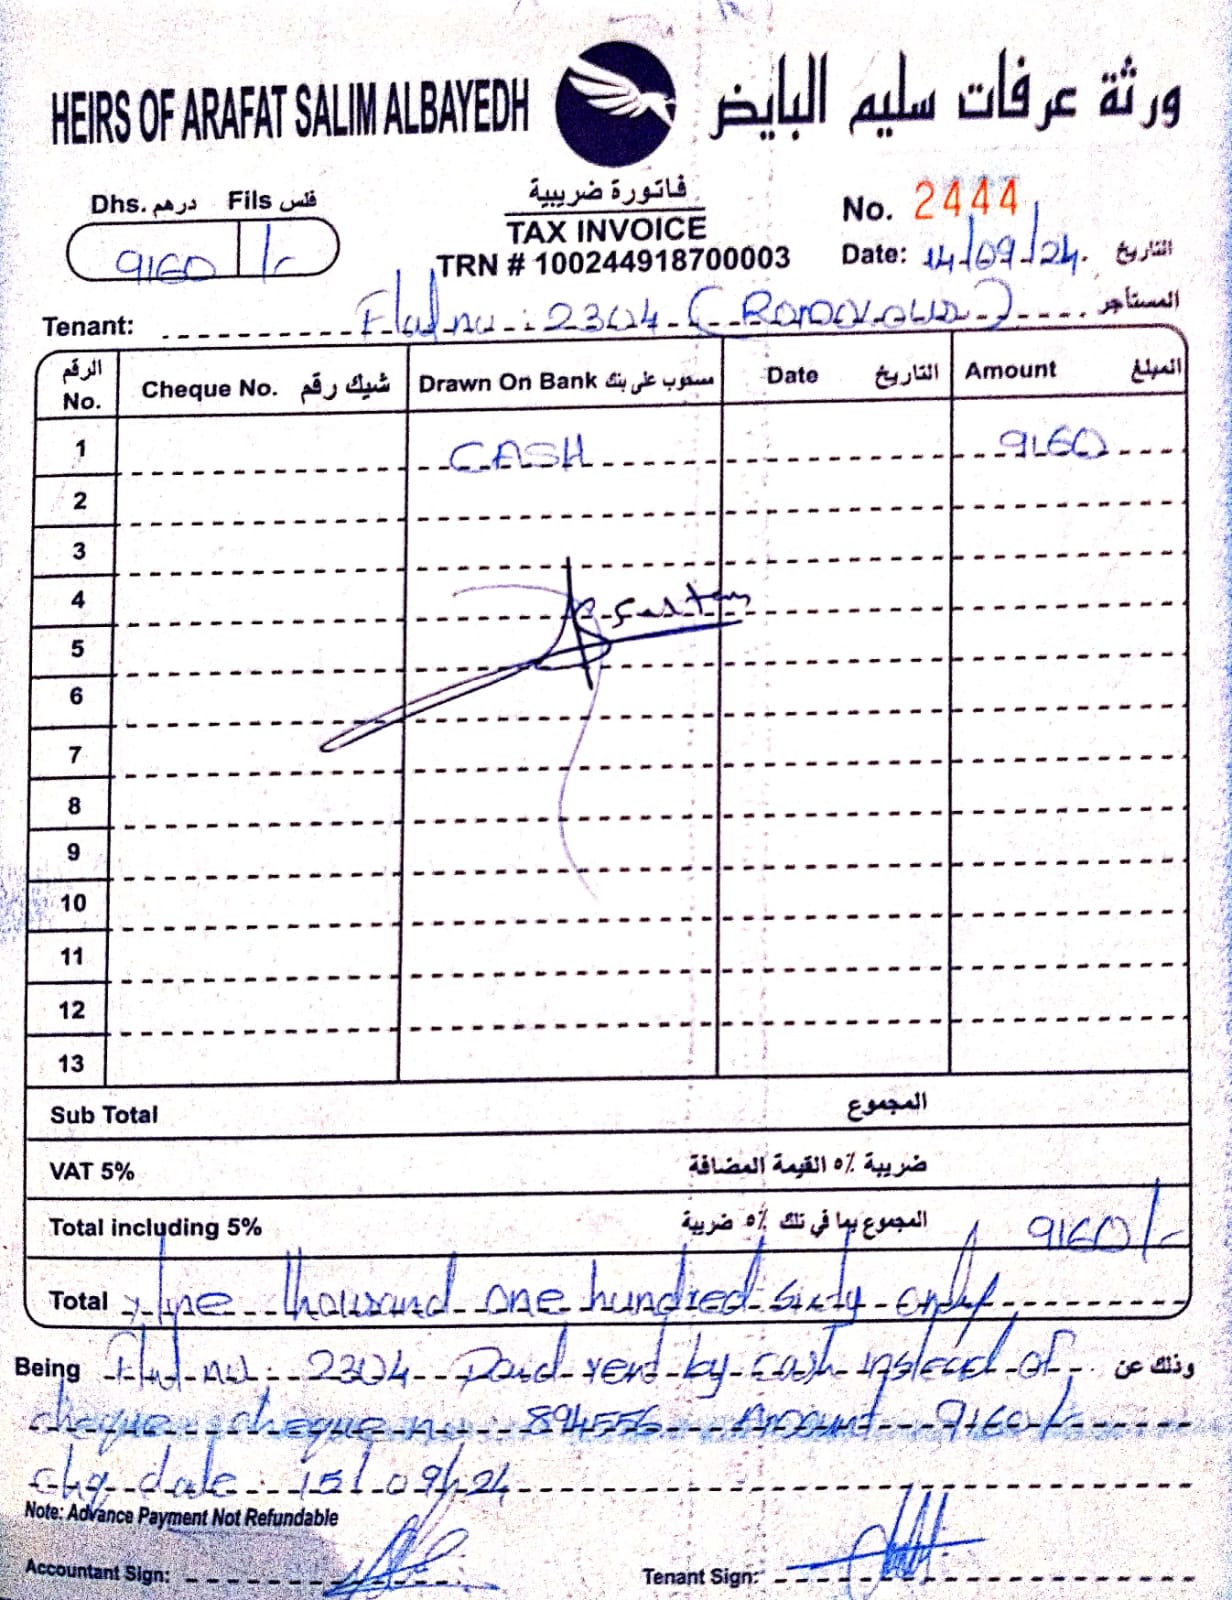 HEIRS OF ARAFAT SALIM ALBAYEDH ورثة عرفات سليم البايض
Dhs. درهم Fils فلس
9160 /-
فاتورة ضريبية
TAX INVOICE
TRN # 100244918700003
No. 2444
Date: 14/09/24. التاريخ
Tenant: Flat no : 2304 ( ) المستأجر
الرقم No. Cheque No. شيك رقم Drawn On Bank مسحوب على بنك Date التاريخ Amount المبلغ
1 CASH 9160
2
3
4
5
6
7
8
9
10
11
12
13
Sub Total المجموع
VAT 5% ضريبة ٥٪ القيمة المضافة
Total including 5% المجموع بما في تلك ٥٪ ضريبة 9160/-
Total Nine thousand one hundred sixty only
Being Flat no : 2304 Paid rent by cash instead of وذلك عن
cheque cheque no : 894556 Amount 9160/-
chq date : 15/09/24
Note: Advance Payment Not Refundable
Accountant Sign: Tenant Sign: